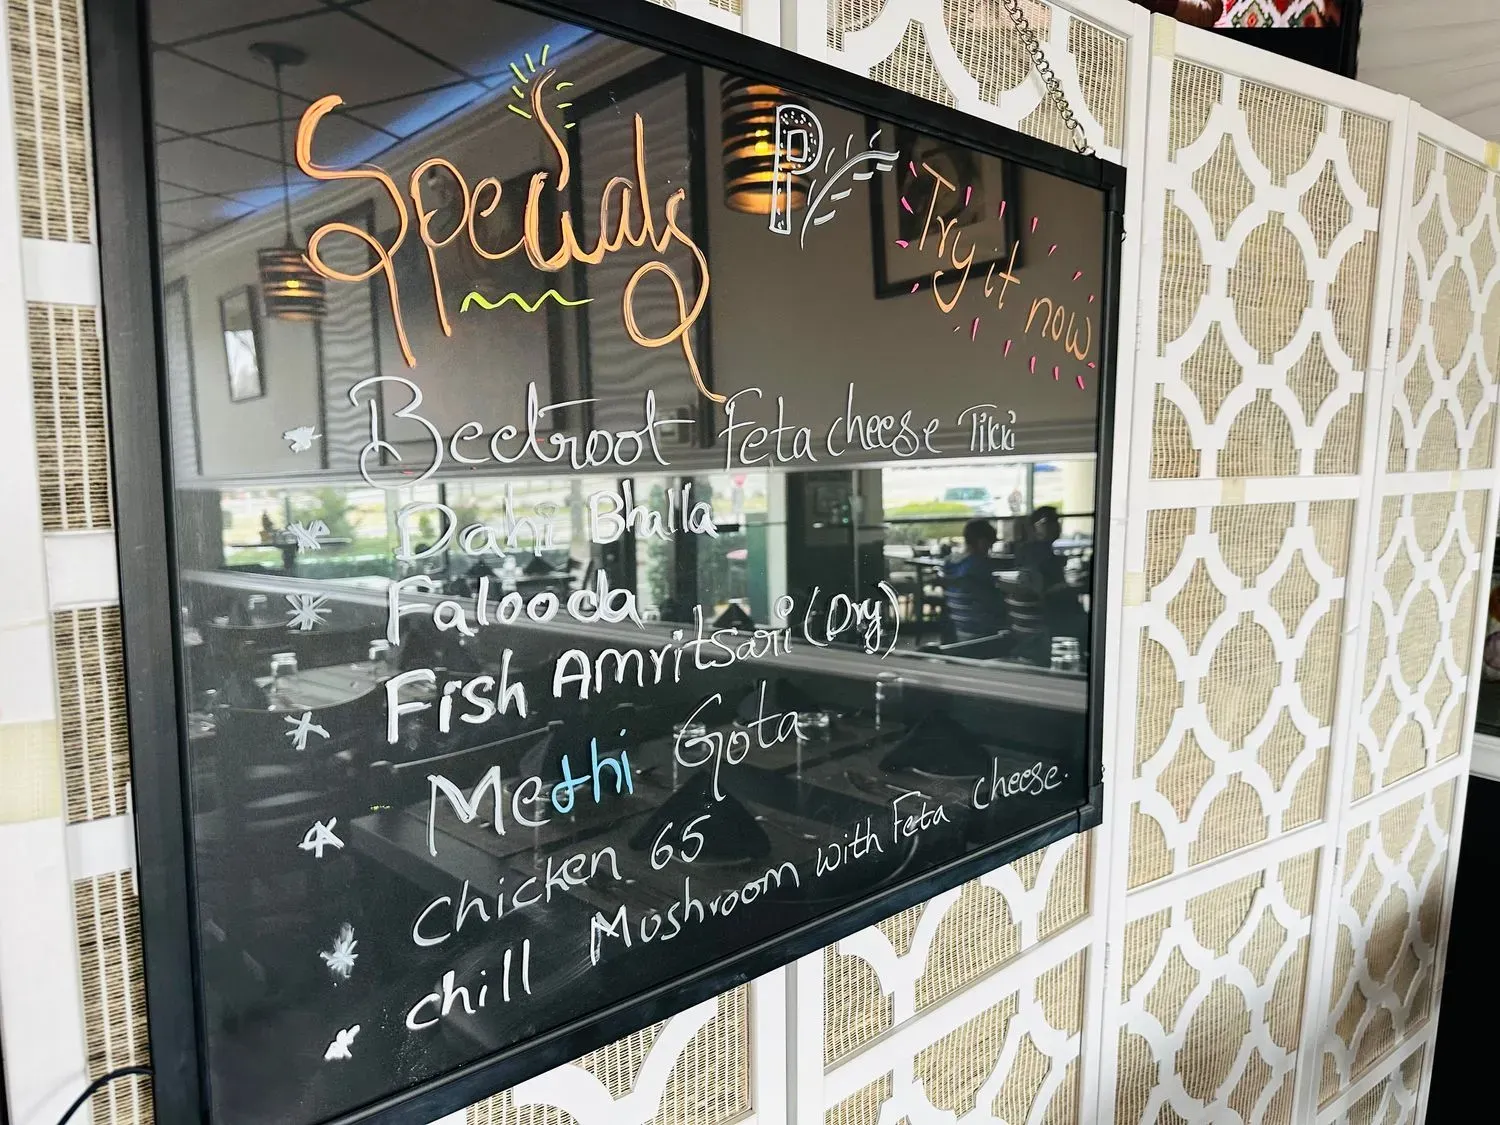 Specials
P
Try it now
* Beetroot Feta cheese Tikki
* Dahi Bhalla
* Falooda
* Fish Amritsari (Dry)
* Methi Gota
* Chicken 65
* chill Mushroom with Feta cheese.